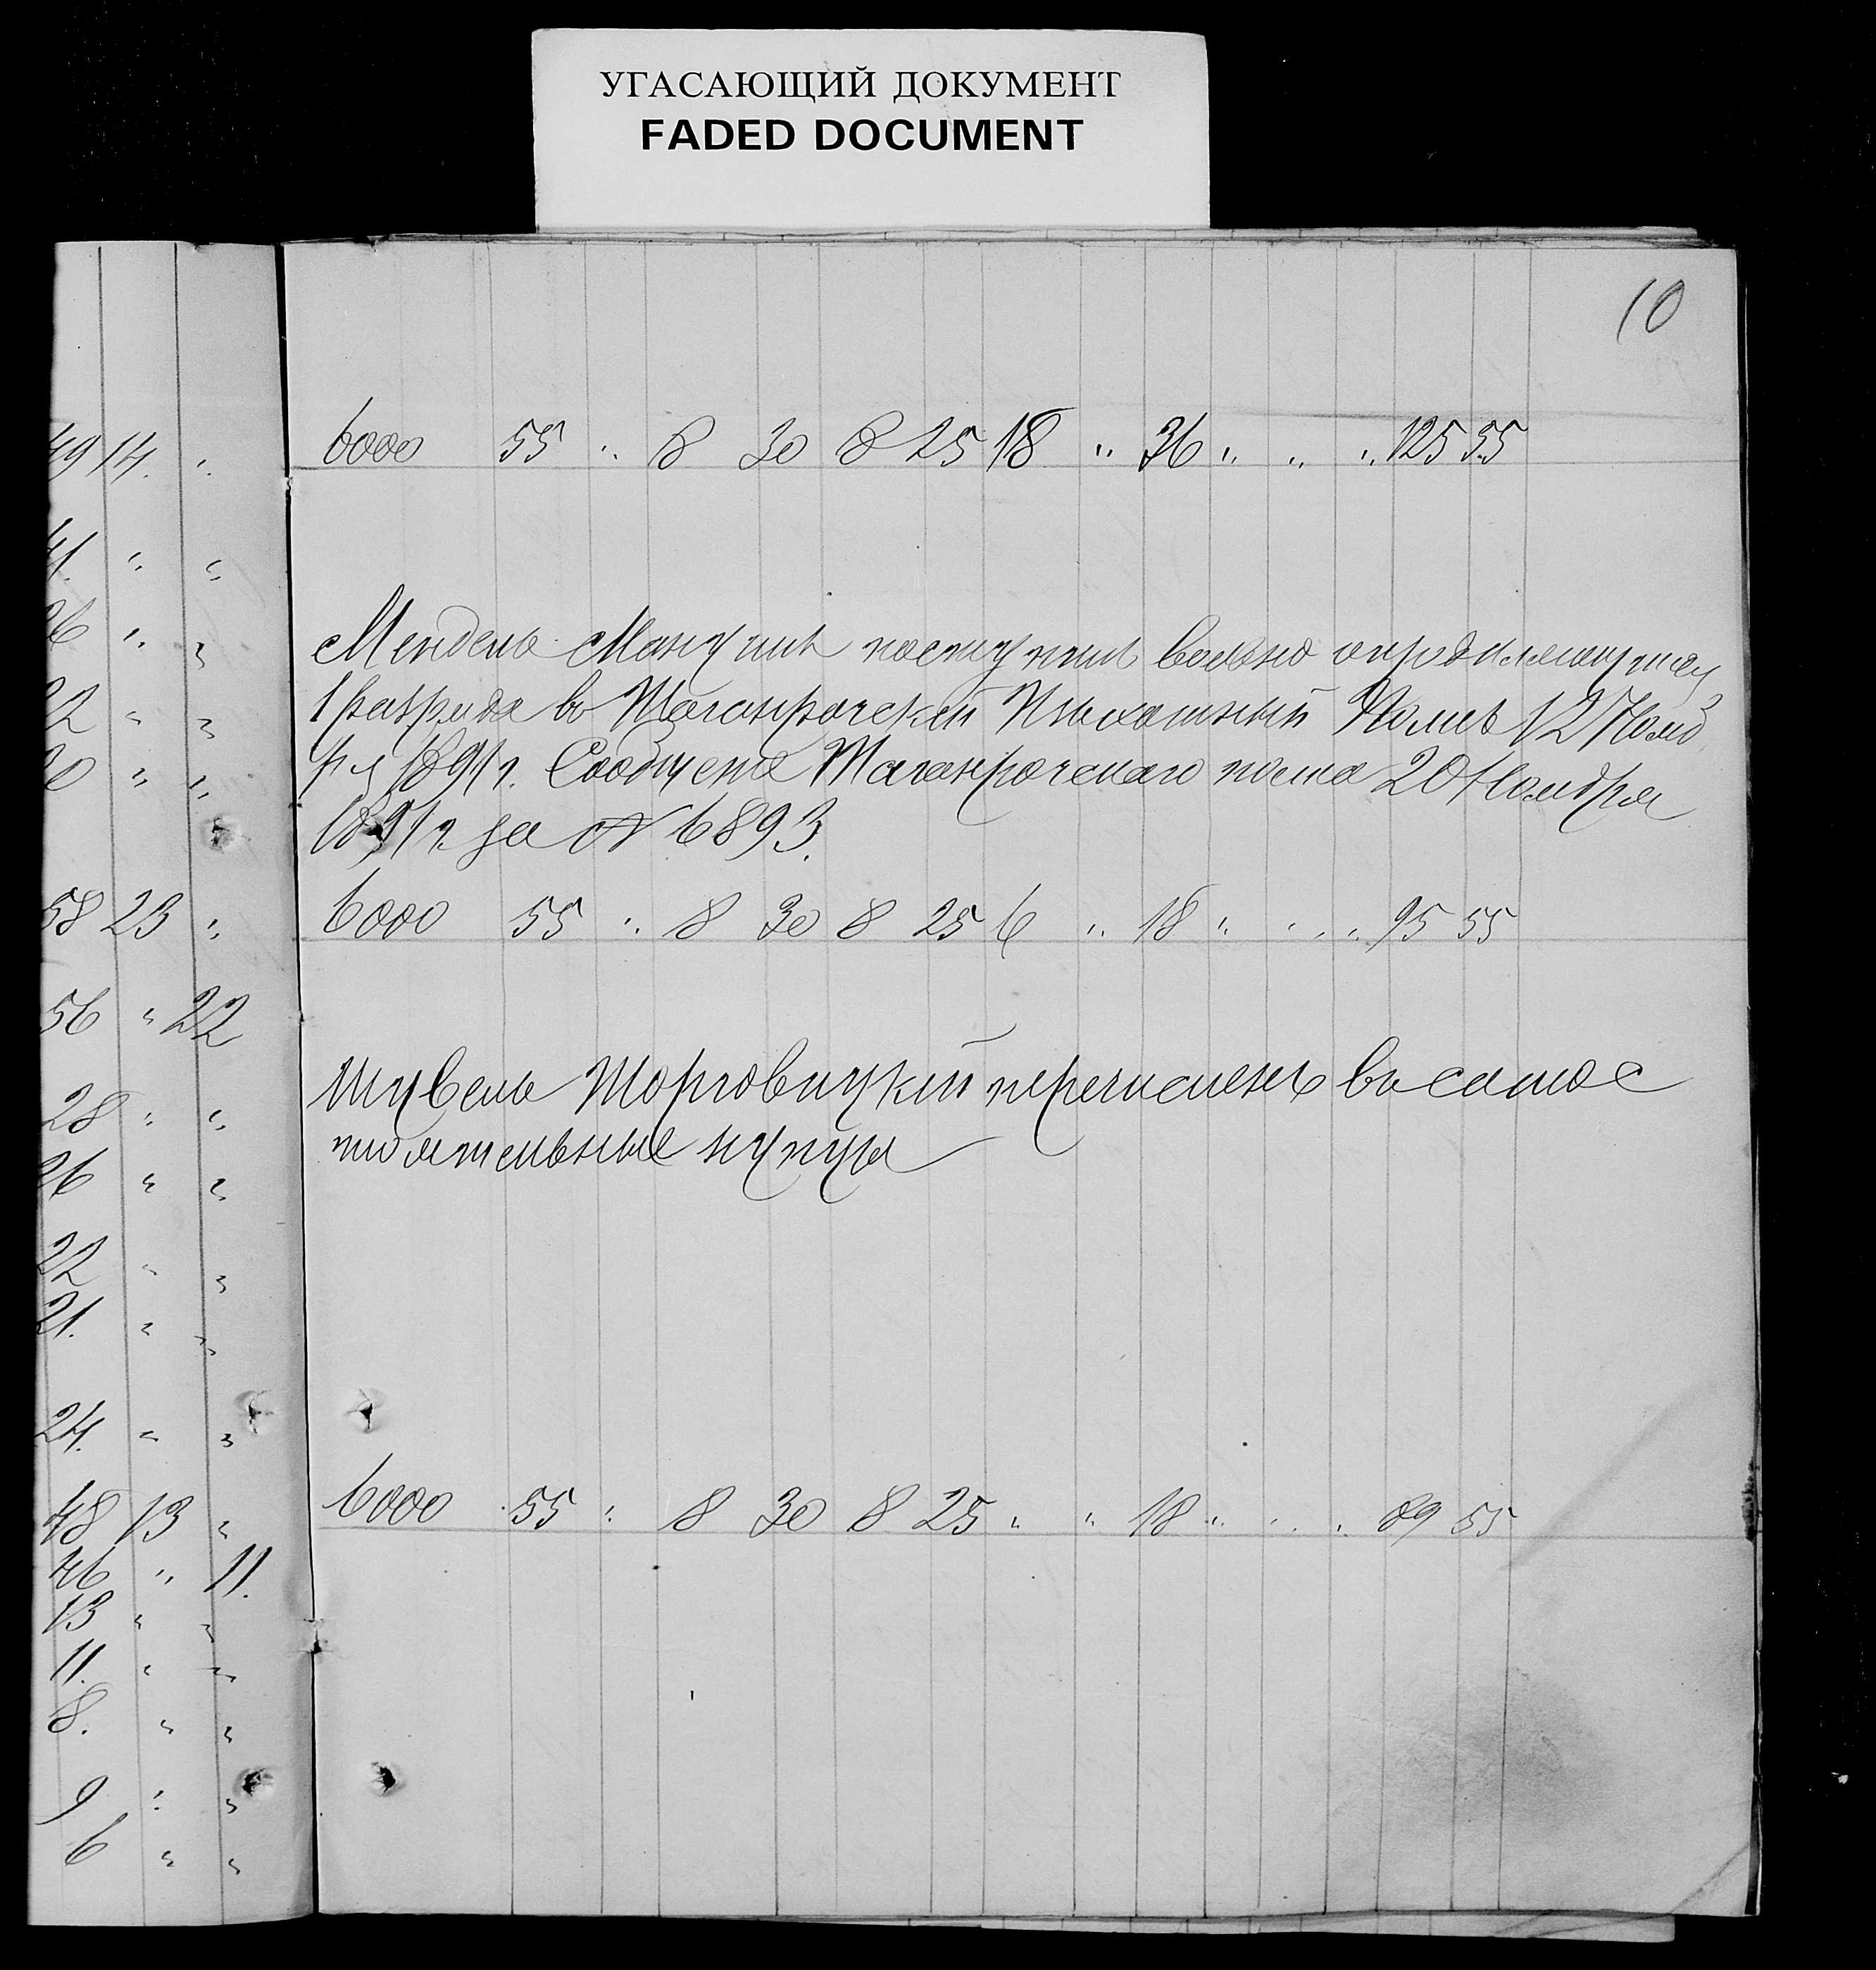 УГАСАЮЩИЙ ДОКУМЕНТ
FADED DOCUMENT
10
49 14. "
6000 55 " 8 30 8 25 18 " 36 " " " 125 55
41. " "
26 " "
Мендель поступил вольно определяющимся
22 " "
1 разряда в Таганрогский Пехотный Полк 12 Нояб
20 " "
ря 1891 г. Сообщение Таганрогского полка 20 Ноября
1891 г. за № 6893.
58 23 "
6000 55 " 8 30 8 25 6 " 18 " " " 95 55
56 " 22
28 " "
Шувель Торговицкий перечислен в самос
26 " "
тоятельные купцы
22 " "
21. " "
24. " "
48 13 "
6000 55 " 8 30 8 25 " " 18 " " " 89 55
46 " 11.
13 " "
11. " "
8. " "
9 " "
6 " "